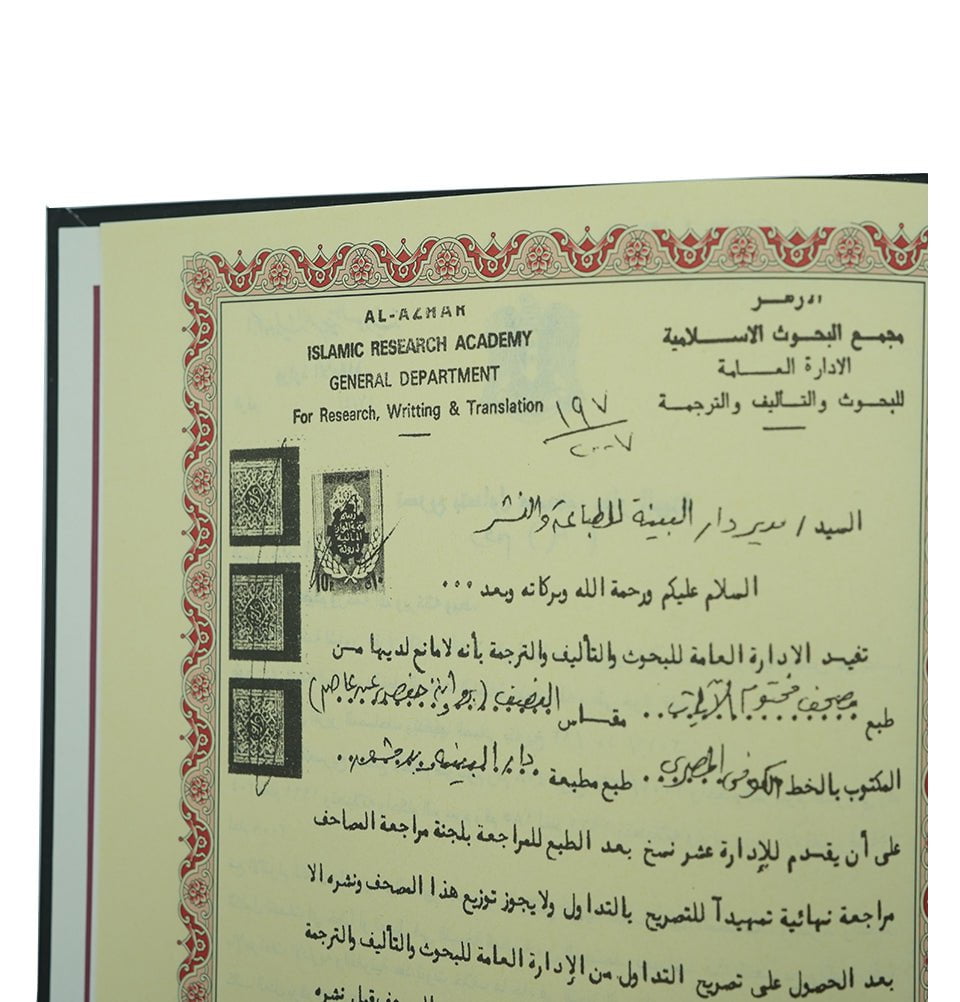 AL-AZHAR
ISLAMIC RESEARCH ACADEMY
GENERAL DEPARTMENT
For Research, Writting & Translation
الازهــر
مجمع البحــوث الاســـلامية
الادارة العـــامة
للبحــوث والتــأليف والترجمــة
١٩٧
٢٠٠٧
السيد / مدير دار البينة للطباعة والنشر
السلام عليكم ورحمة الله وبركاته وبعد ...
تفيـد الادارة العامة للبحوث والتأليف والترجمة بأنه لامانع لديها مـن
طبع مصحف مختوم الآيات .. مقــاس النصيف (برواية حفص عن عاصم)
المكتوب بالخط الكوفى المصرى . طبع مطبعة دار البينه بدمشق ..
على أن يقـدم للإدارة عشر نسخ بعد الطبع للمراجعة بلجنة مراجعة المصاحف
مراجعة نهائية تمهيدآ للتصريح بالتداول ولا يجوز توزيع هذا المصحف ونشره الا
بعد الحصول على تصريح التداول من الإدارة العامة للبحوث والتأليف والترجمة
قبل نشره